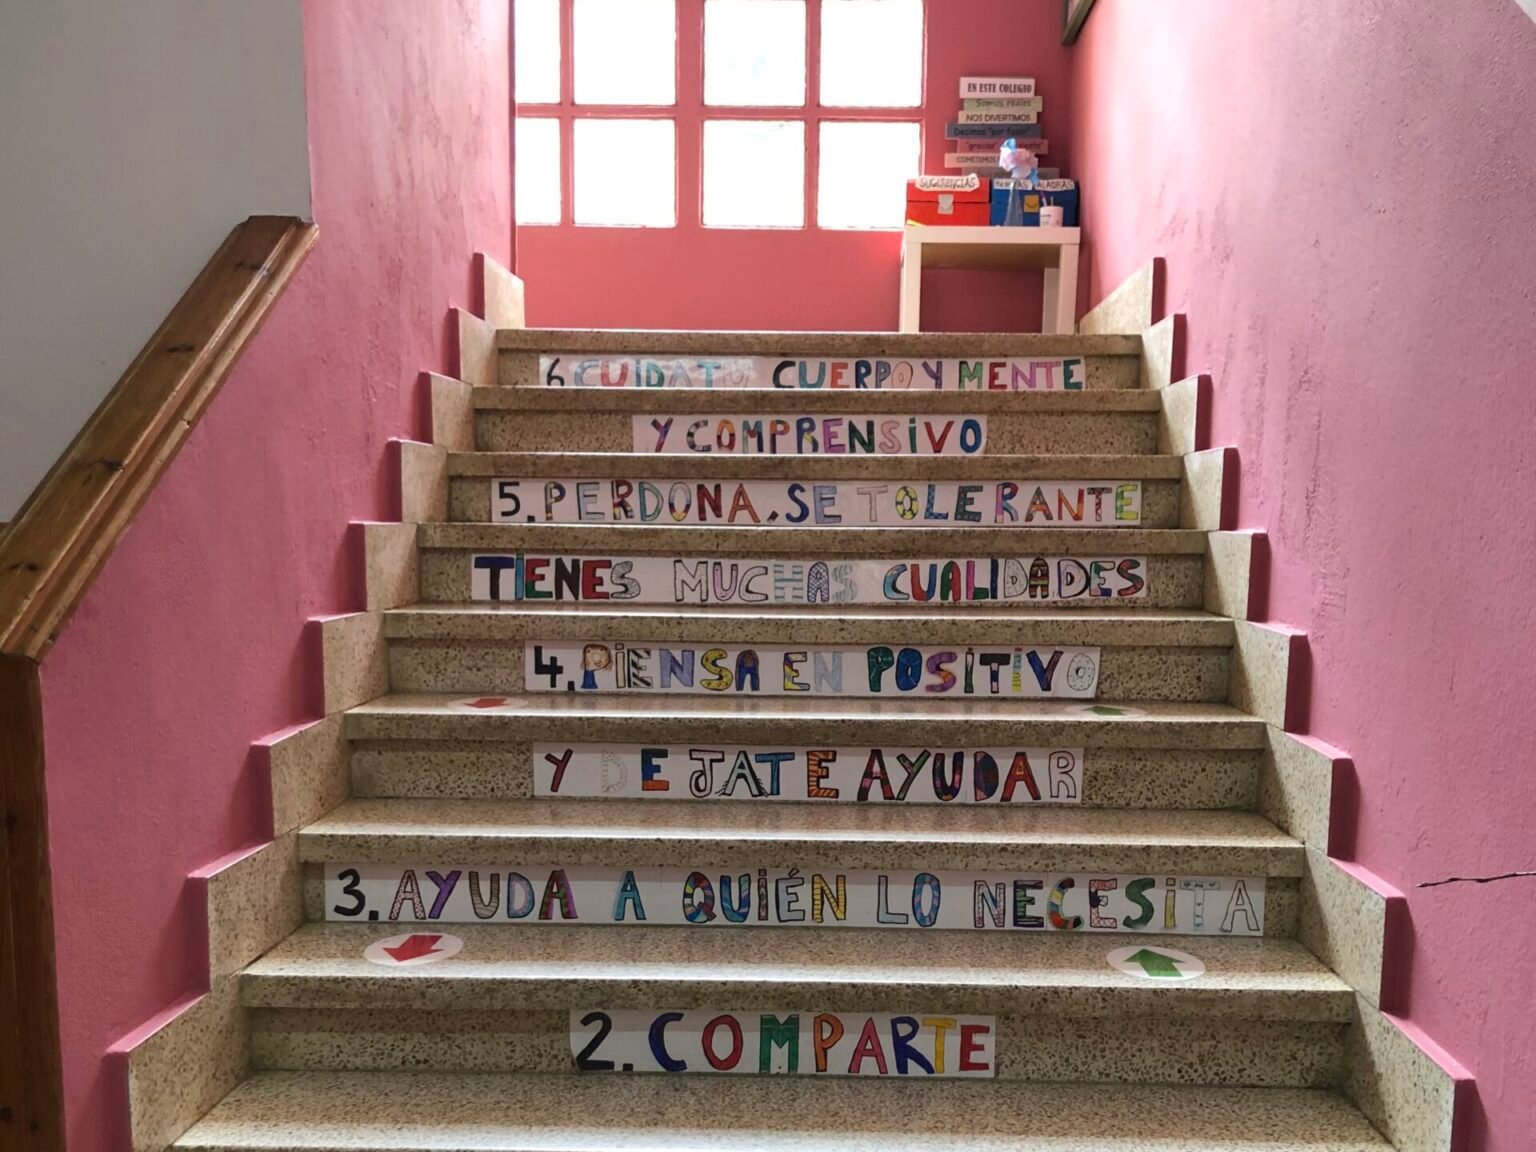 EN ESTE COLEGIO
Somos reales
NOS DIVERTIMOS
Decimos "por favor"
"gracias"
COMETEMOS
SUGERENCIAS
6 CUIDA TU CUERPO Y MENTE
Y COMPRENSIVO
5. PERDONA, SE TOLERANTE
TIENES MUCHAS CUALIDADES
4. PIENSA EN POSITIVO
Y DEJATE AYUDAR
3. AYUDA A QUIÉN LO NECESITA
2. COMPARTE